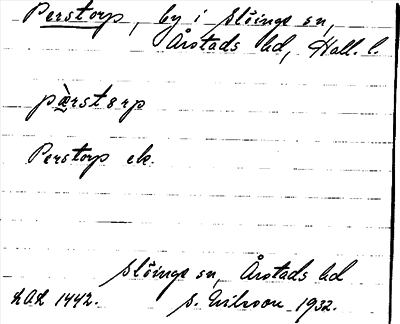 Perstorp, by i Slöinge sn,
Årstads hd, Hall. l.
pæ̀rstɔrp
Perstorp ek.
Slöinge sn, Årstads hd
LAL 1442. S. Nilsson 1932.